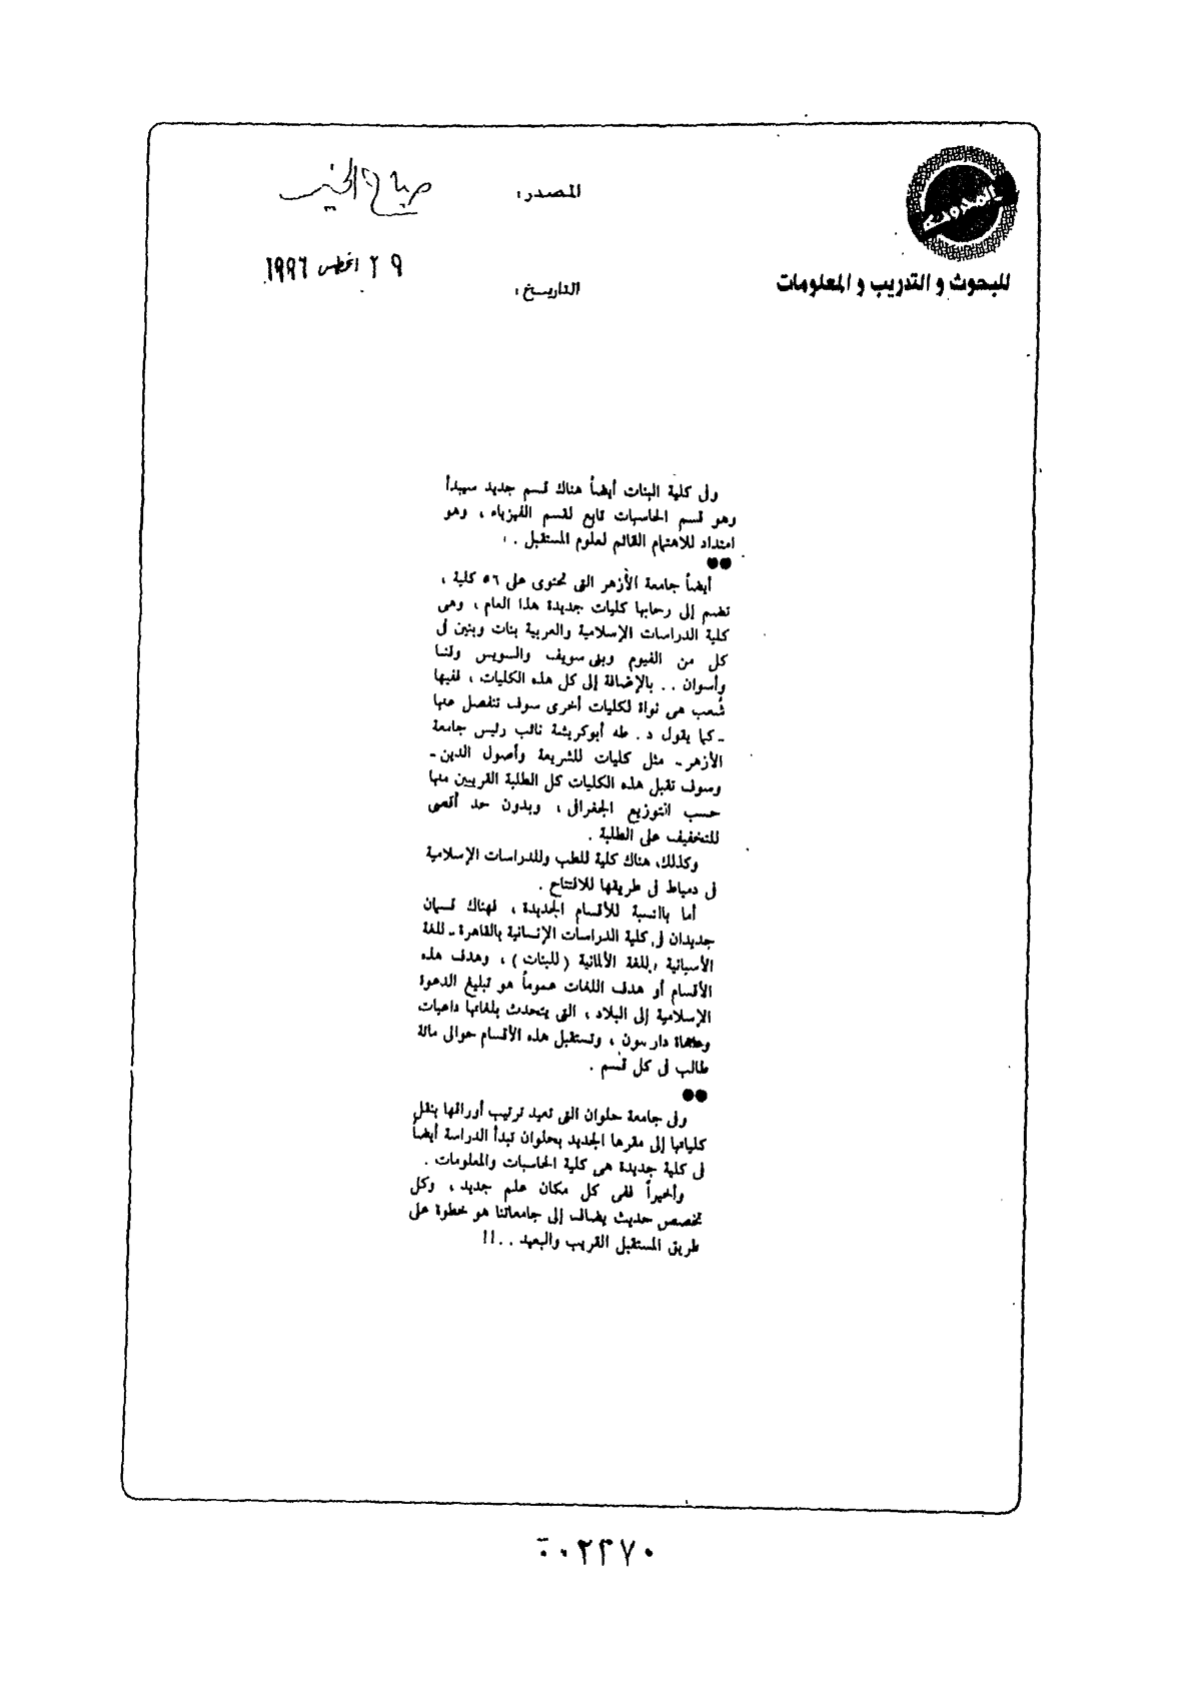 المحروسة
للبحوث و التدريب و المعلومات
المصدر: صباح الخير
التاريخ: ٢٩ اغسطس ١٩٩٦
وفى كلية البنات أيضاً هناك قسم جديد سيبدأ
وهو قسم الحاسبات تابع لقسم الفيزياء ، وهو
امتداد للاهتمام القائم لعلوم المستقبل .
●●
أيضاً جامعة الأزهر التى تحتوى على ٥٦ كلية ،
تضم إلى رحابها كليات جديدة هذا العام ، وهى
كلية الدراسات الإسلامية والعربية بنات وبنين فى
كل من الفيوم وبنى سويف والسويس وقنا
وأسوان . . بالإضافة إلى كل هذه الكليات ، ففيها
شُعب هى نواة لكليات أخرى سوف تنفصل عنها
ـ كما يقول د . طه أبوكريشة نائب رئيس جامعة
الأزهر ـ مثل كليات للشريعة وأصول الدين ـ
وسوف تقبل هذه الكليات كل الطلبة القريبين منها
حسب التوزيع الجغرافى ، وبدون حد أقصى
للتخفيف على الطلبة .
وكذلك، هناك كلية للطب وللدراسات الإسلامية
فى دمياط فى طريقها للافتتاح .
أما بالنسبة للأقسام الجديدة ، فهناك قسمان
جديدان فى كلية الدراسات الإنسانية بالقاهرة ـ للغة
الأسبانية وللغة الألمانية (للبنات) ، وهدف هذه
الأقسام أو هدف اللغات عموماً هو تبليغ الدعوة
الإسلامية إلى البلاد ، التى يتحدث بلغاتها داعيات
دارسون ، وتستقبل هذه الأقسام حوالى مائة
طالب فى كل قسم .
●●
وفى جامعة حلوان التى تعيد ترتيب أوراقها بنقل
كلياتها إلى مقرها الجديد بحلوان تبدأ الدراسة أيضاً
فى كلية جديدة هى كلية الحاسبات والمعلومات .
وأخيراً ففى كل مكان علم جديد ، وكل
تخصص حديث يضاف إلى جامعاتنا هو خطوة على
طريق المستقبل القريب والبعيد . . !!